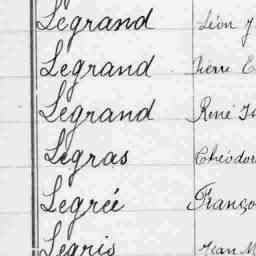 Legrand Léon J
Legrand Pierre E
Legrand René
Legras Théodor
Legrée Franço
Legris Jean M